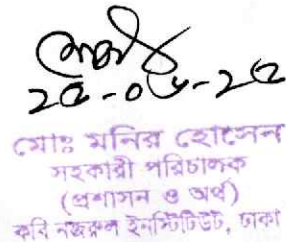 ২৫-০৬-২৫
মোঃ মনির হোসেন
সহকারী পরিচালক
(প্রশাসন ও অর্থ)
কবি নজরুল ইনস্টিটিউট, ঢাকা